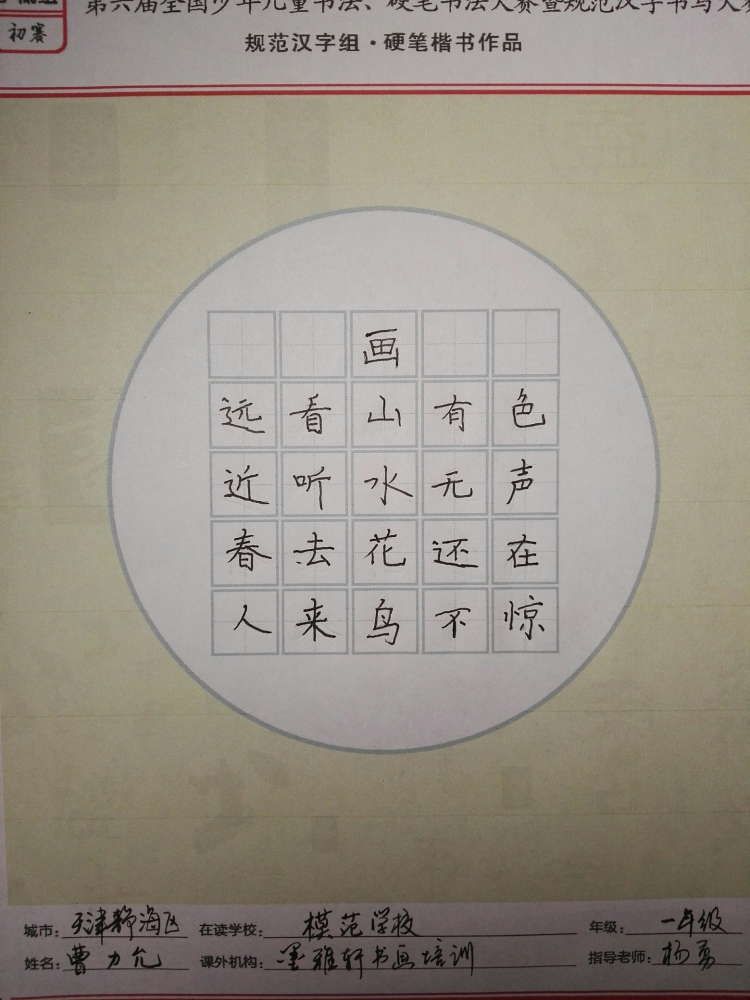 初赛
第六届全国少年儿童书法、硬笔书法大赛暨规范汉字书写大赛
规范汉字组·硬笔楷书作品
画
远看山有色
近听水无声
春去花还在
人来鸟不惊
城市: 天津静海区 在读学校: 模范学校 年级: 一年级
姓名: 曹力允 课外机构: 墨雅轩书画培训 指导老师: 杨勇